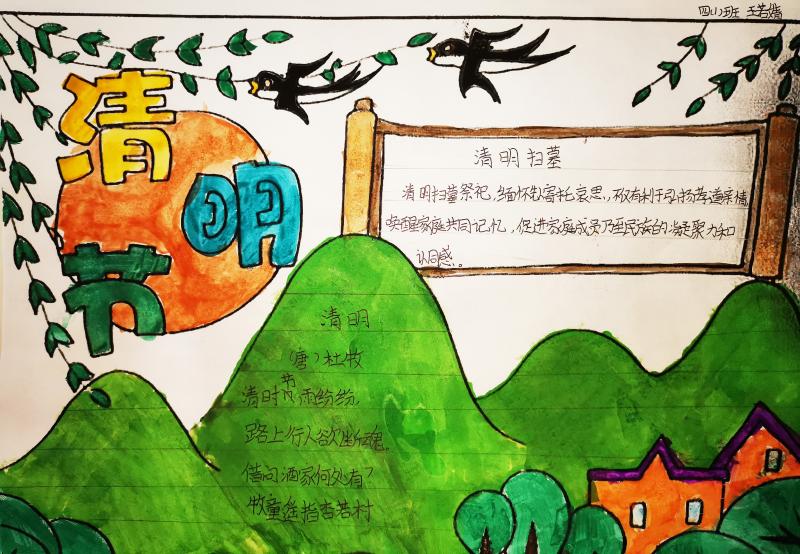 四(1)班 王若嫣
清
明
节
清明扫墓
清明扫墓祭祀,缅怀似寄托哀思,,不仅有利于弘扬孝道亲情
唤醒家庭共同记忆,促进家庭成员乃至民族的凝聚力和
认同感。
清明
(唐)杜牧
清时节雨纷纷,
路上行人欲断魂。
借问酒家何处有?
牧童遥指杏若村